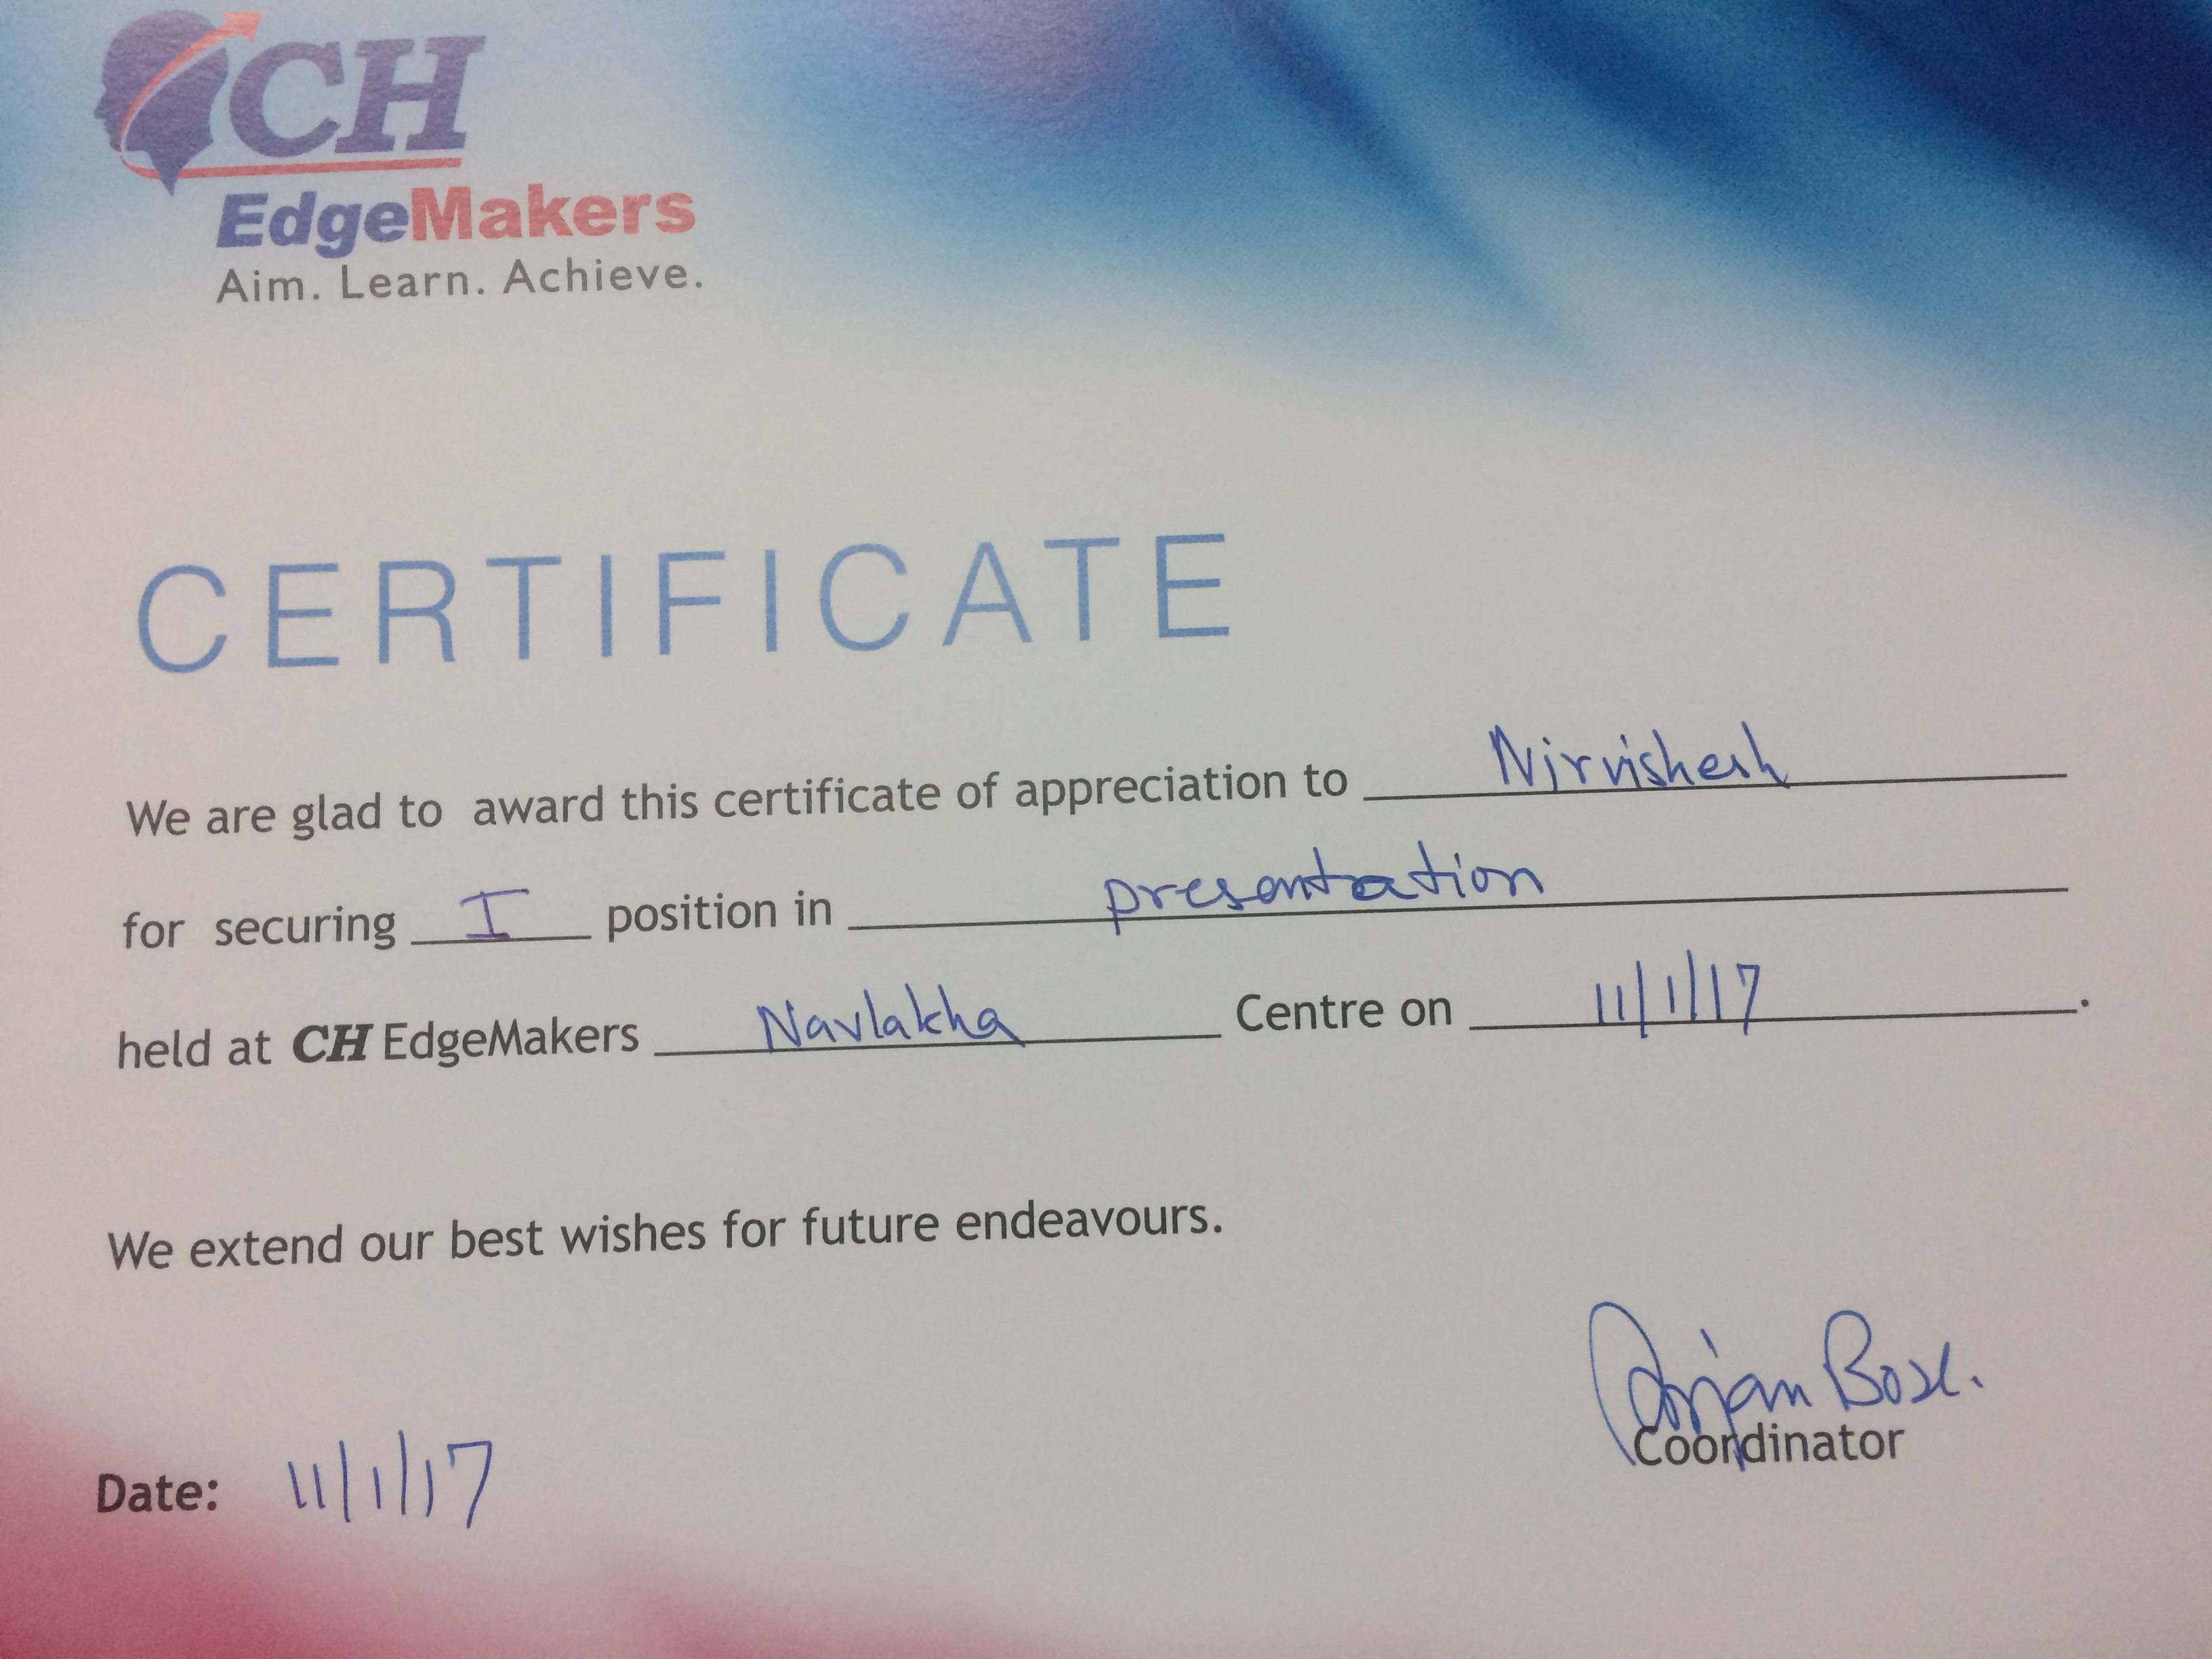 CH
EdgeMakers
Aim. Learn. Achieve.
CERTIFICATE
We are glad to award this certificate of appreciation to Nirvishesh
for securing I position in presentation
held at CH EdgeMakers Navlakha Centre on 11/1/17.
We extend our best wishes for future endeavours.
Bose.
Coordinator
Date: 11/1/17